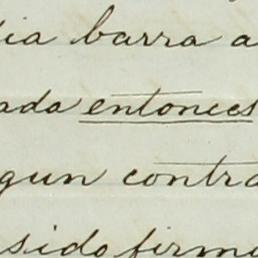 ia barra a
ada entonces
gun contra
sido firm